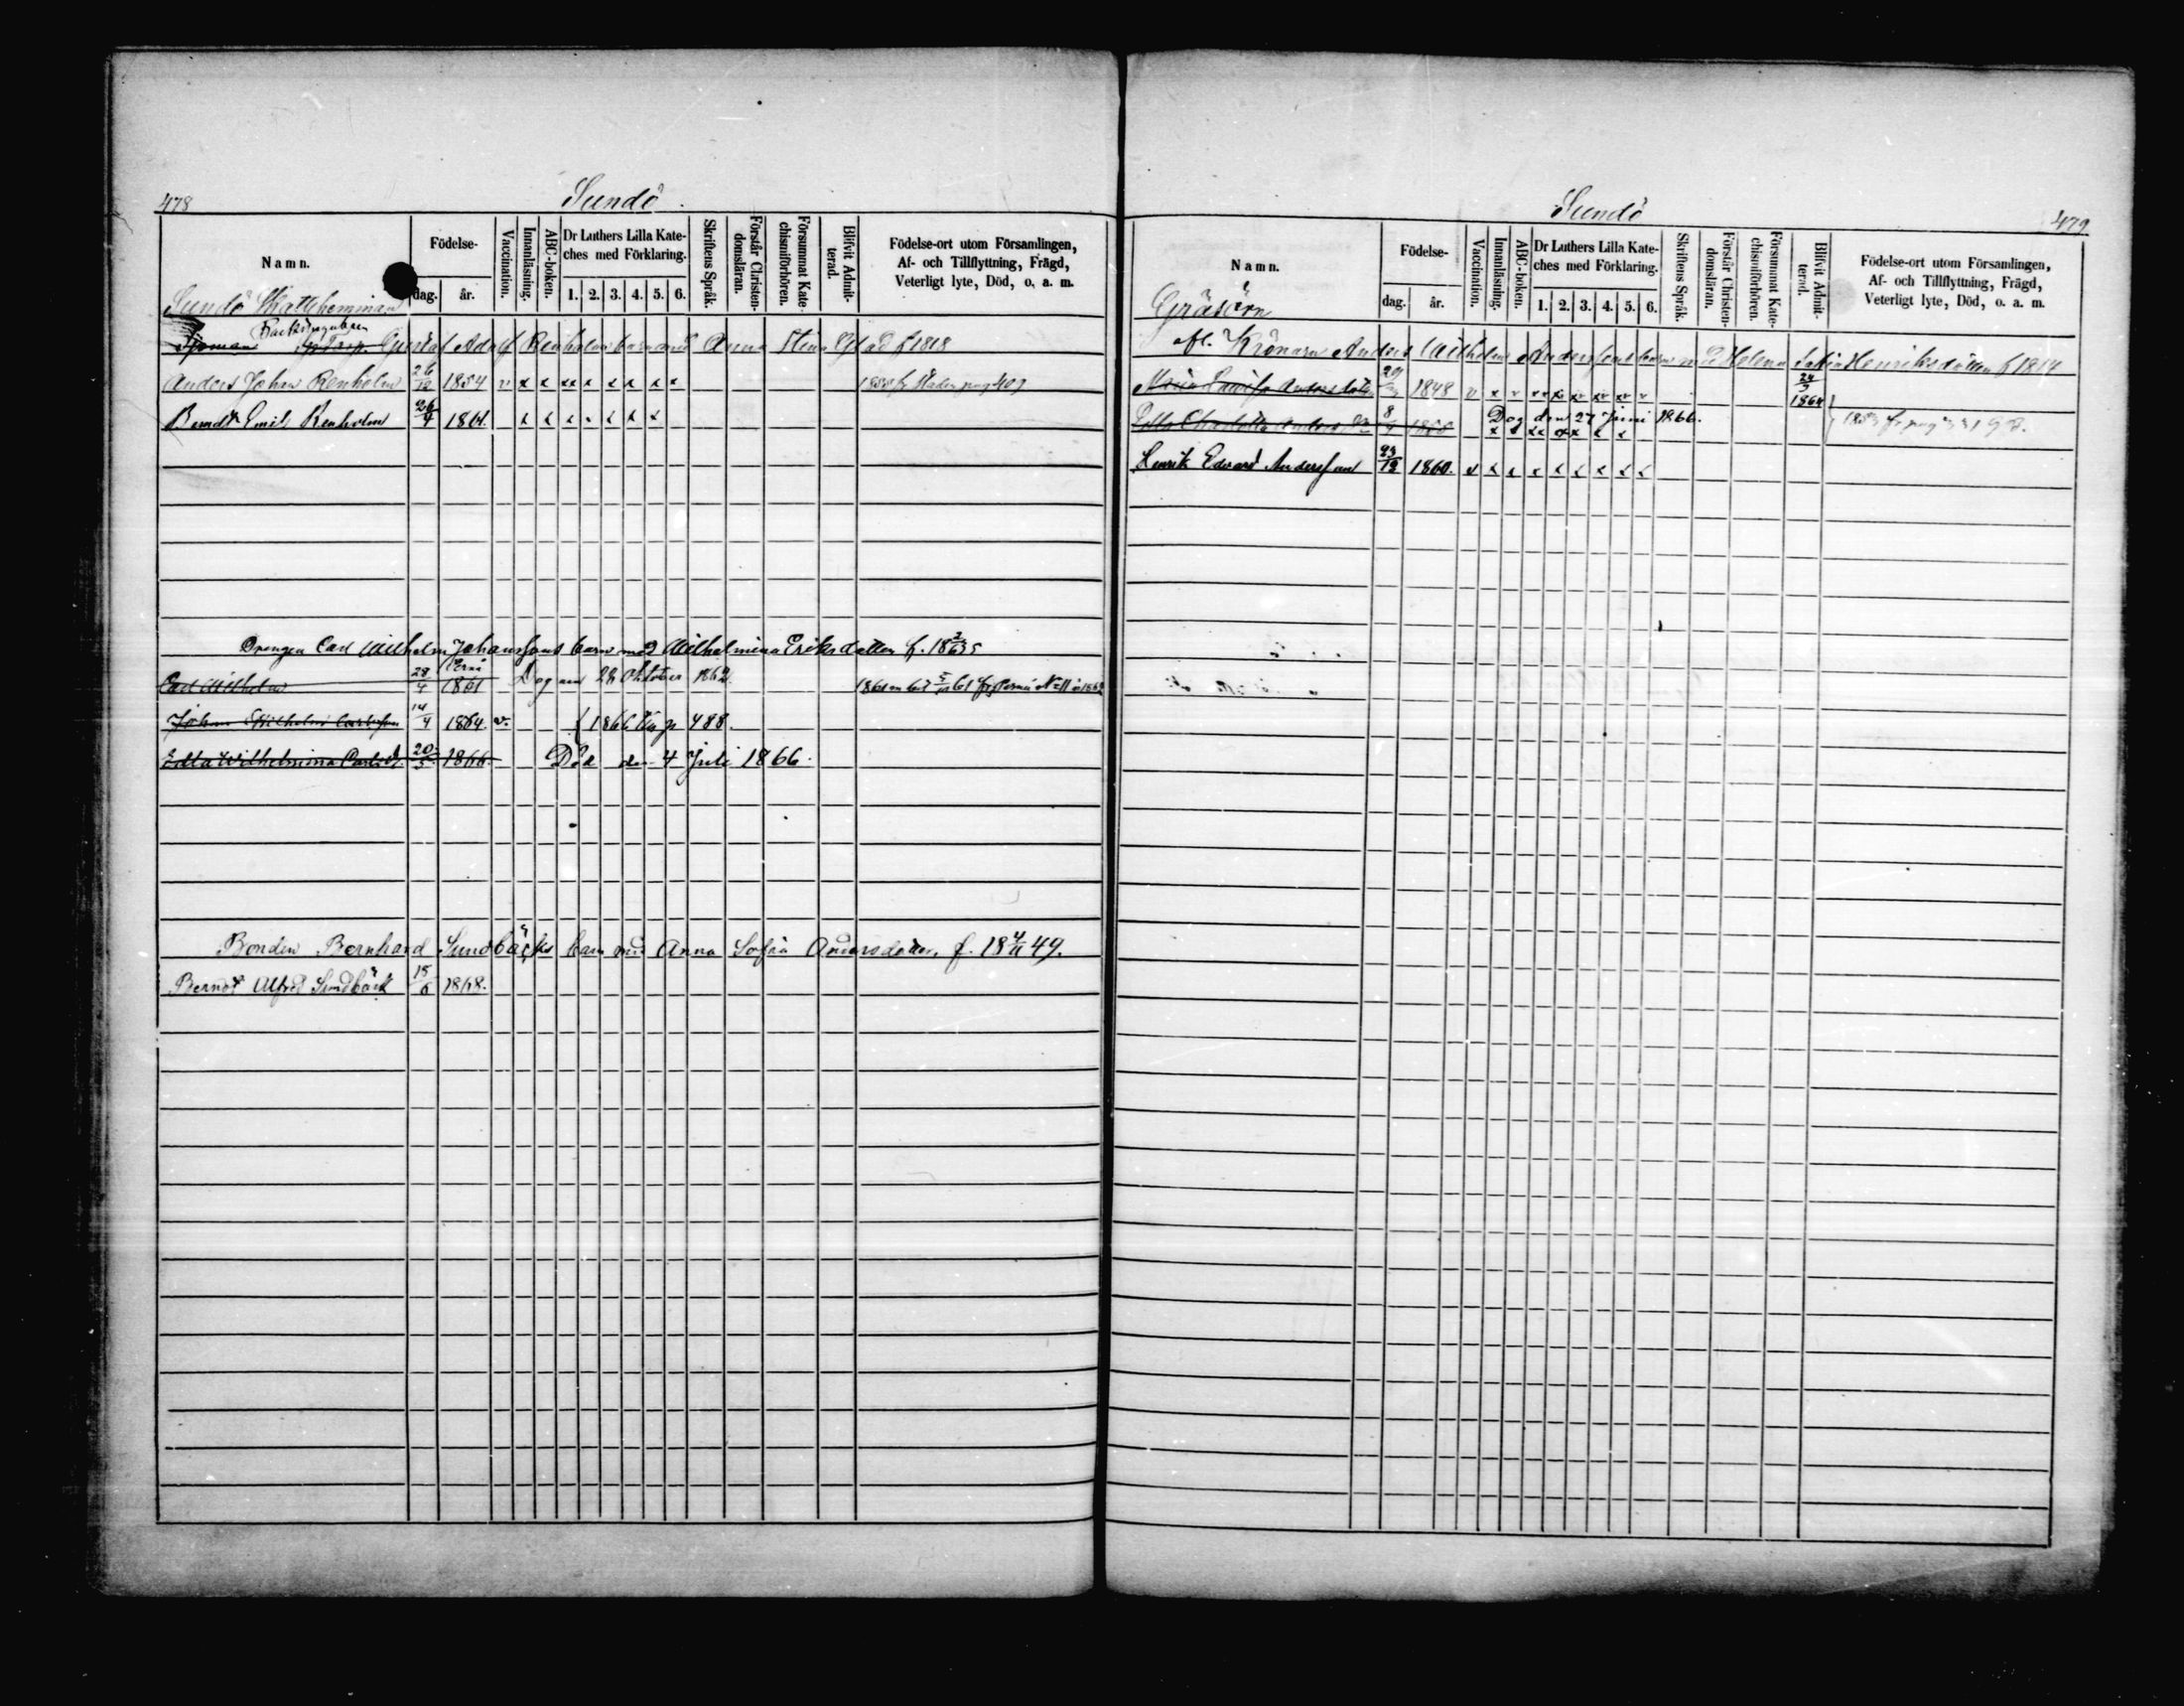 478
Sundö.
Namn.
Födelse-
dag. år.
Vaccination.
Innanläsning.
ABC-boken.
Dr Luthers Lilla Kate-
ches med Förklaring.
1. 2. 3. 4. 5. 6.
Skriftens Språk.
Förstår Christen-
domsläran.
Försummat Kate-
chismiförhören.
Blifvit Admit-
terad.
Födelse-ort utom Församlingen,
Af- och Tillflyttning, Frägd,
Veterligt lyte, Död, o. a. m.
Sundö Skattehemman
Gustaf Adolf Renholms barn med Anna Stina f 1818
Anders Johan Renholm 26/12 1854 v x x xx x x x x x
Berndt Emil Renholm 26/4 1861. x x x x x x x
Drengen Carl Wilhelm Johanssons barn med Wilhelmina Eriksdotter f. 18 35
Carl Wilhelm 28/4 1861 Dog den 28 Oktober 1862
Johan Wilhelm Carlsson 14/4 1864 v. 1866 p 488.
Edla Wilhelmina Carlsd. 20/5 1866. Död den 4 Juli 1866.
Bonden Bernhard Sundbäcks barn med Anna Sofia Andersdotter, f. 18 4/11 49.
Berndt Alfred Sundbäck 18/6 1868.
Sundö
479
Namn.
Födelse-
dag. år.
Vaccination.
Innanläsning.
ABC-boken.
Dr Luthers Lilla Kate-
ches med Förklaring.
1. 2. 3. 4. 5. 6.
Skriftens Språk.
Förstår Christen-
domsläran.
Försummat Kate-
chismiförhören.
Blifvit Admit-
terad.
Födelse-ort utom Församlingen,
Af- och Tillflyttning, Frägd,
Veterligt lyte, Död, o. a. m.
Gräsörn
afl. Krönarn Anders Wilhelm Anderssons barn med Helena Sofia Henriksdotter f 1814
Maria Lovisa Andersdotter 1848 v x v
Edla Charlotta Andersd. 8/4 Dog den 27 Juni 1866.
Henrik Edvard Andersson 23/12 1860. v x x x x x x x x